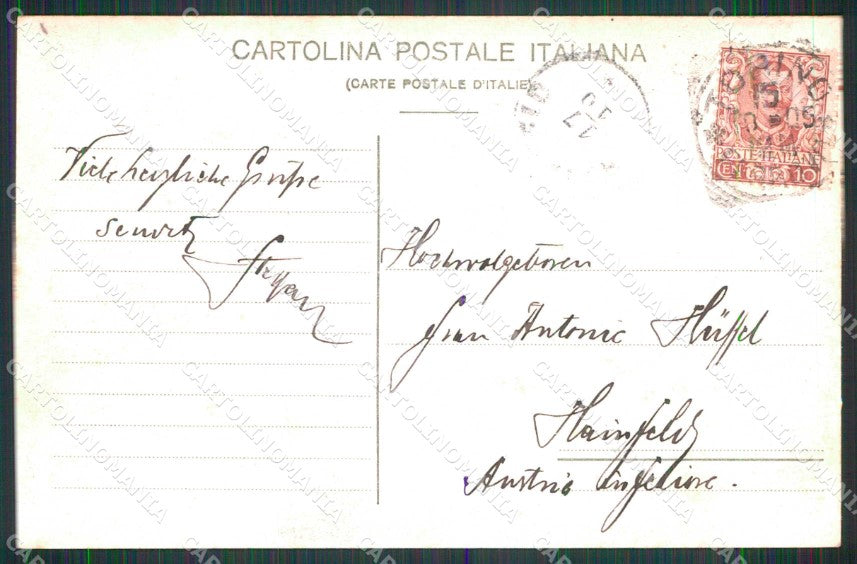 CARTOLINA POSTALE ITALIANA
(CARTE POSTALE D'ITALIE)
POSTE ITALIANE
CENT. 10
15
05
17
10
Viele herzliche Grüße
sendet
Stefan
Hochwolgeboren
Frau Antonie Hüffel
Hainfeld
Austria inferiore.
CARTOLINOMANIA